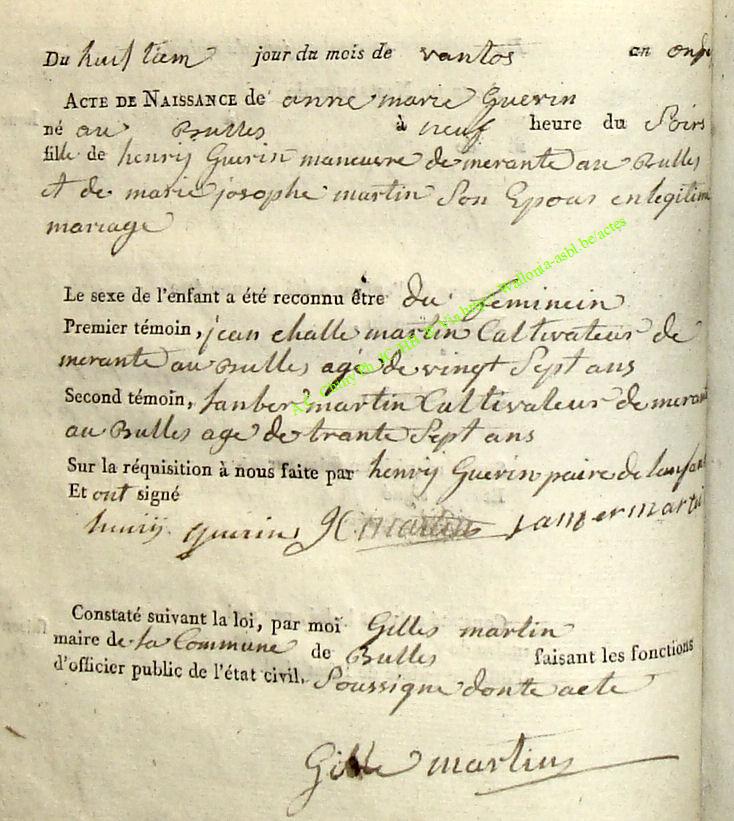 Du huit tiem jour du mois de vantos an
ACTE DE NAISSANCE de anne marie Guerin
né au Bulles à neuf heure du Soirs
fille de henrij Guerin maneuvre de merante au Bulles
et de marie josophe martin Son Epous en legitim
mariage
Le sexe de l'enfant a été reconnu être du feminein
Premier témoin, jean challe martin Caltivateur de
merante au Bulles age de vingt Sept ans
Second témoin, lanber martin Caltivateur de merant
au Bulles age de trante Sept ans
Sur la réquisition à nous faite par henrij Guerin paire de lanfan
Et ont signé
henrij guerin martin lamber martin
Constaté suivant la loi, par moi Gilles martin
maire de la Commune de Bulles faisant les fonctions
d'officier public de l'état civil, Soussigne donte acte
Gille martin
wallonia-asbl.be/actes